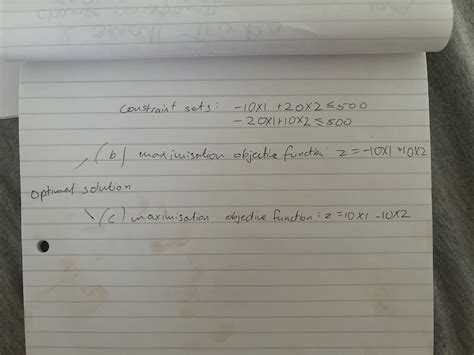 constraint sets: -10x1 +20x2 ≤ 500
-20x1+10x2 ≤ 500
(b) maximisation objective function: z = -10x1 +10x2
optimal solution
(c) maximisation objective function: z = 10x1 -10x2